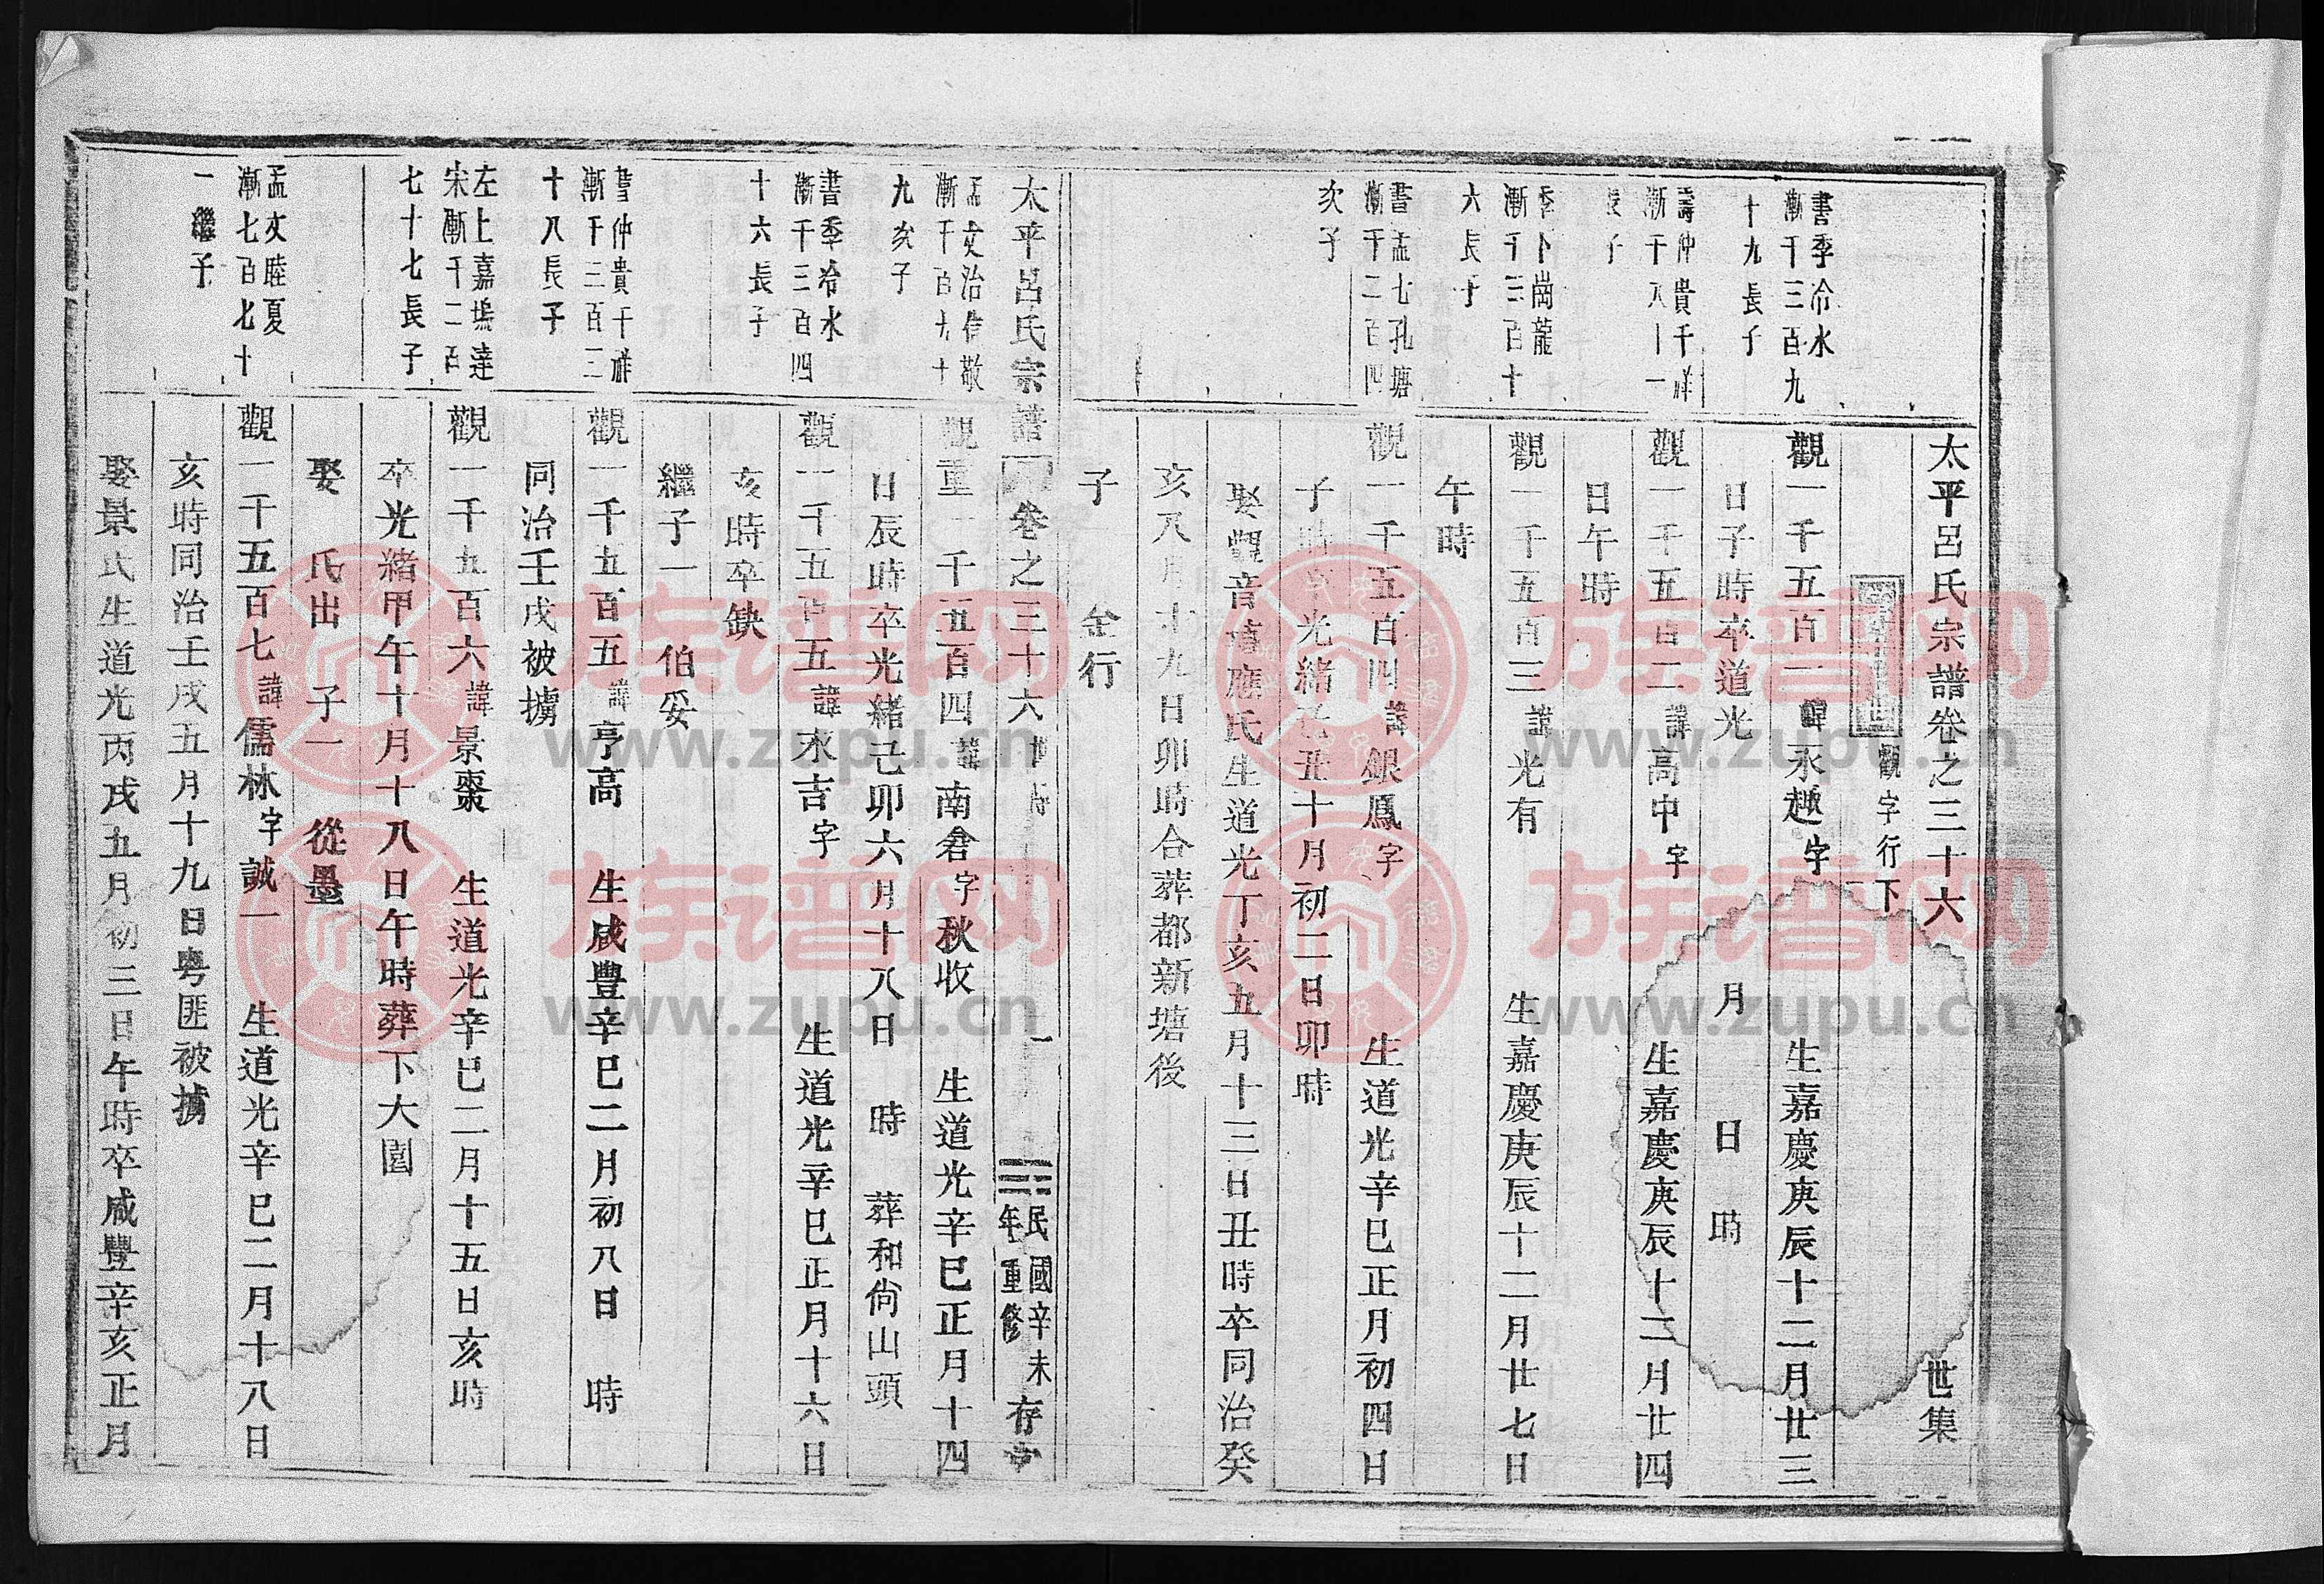 太平呂氏宗譜卷之三十六　世集
觀字行下
書季冷水
漸千三百九
十九長子
觀一千五百一諱永趣字　生嘉慶庚辰十二月廿三
日子時卒道光　月　日　時
壽仲貴千祥
觀一千五百二諱高中字　生嘉慶庚辰十二月廿四
日午時
季卜崗龍
漸千三百十
六長子
觀一千五百三諱光有　生嘉慶庚辰十二月廿七日
午時
書孟七孔塘
漸千二百四
次子
觀一千五百四諱銀鳳字　生道光辛巳正月初四日
子時卒光緒丑十月初二日卯時
娶觀音應氏生道光丁亥五月十三日丑時卒同治癸
亥八月十九日卯時合葬都新塘後
子　金行
太平呂氏宗譜　卷之三十六　一　民國辛未年重修　存
孟文治信敬
漸千百九十
九次子
觀重一千五百四諱南倉字秋收　生道光辛巳正月十四
日辰時卒光緒己卯六月十八日　時　葬和尙山頭
書季冷水
漸千三百四
十六長子
觀一千五百五諱永吉字　生道光辛巳正月十六日
亥時卒缺
繼子一　伯妥
書仲貴千祥
漸千三百三
十八長子
觀一千五百五諱亨高　生咸豐辛巳二月初八日　時
同治壬戌被擄
左上嘉塢達
宋漸千二百
七十七長子
觀一千五百六諱景棗　生道光辛巳二月十五日亥時
卒光緒甲午十月十八日午時葬下大園
娶　氏出　子一　從墨
孟文睦夏
漸七百七十
一繼子
觀一千五百七諱儒林字誠一　生道光辛巳二月十八日
亥時同治壬戌五月十九日粵匪被擄
娶景氏生道光丙戌五月初三日午時卒咸豐辛亥正月
族谱网
www.zupu.cn
族谱网
www.zupu.cn
族谱网
www.zupu.cn
族谱网
www.zupu.cn